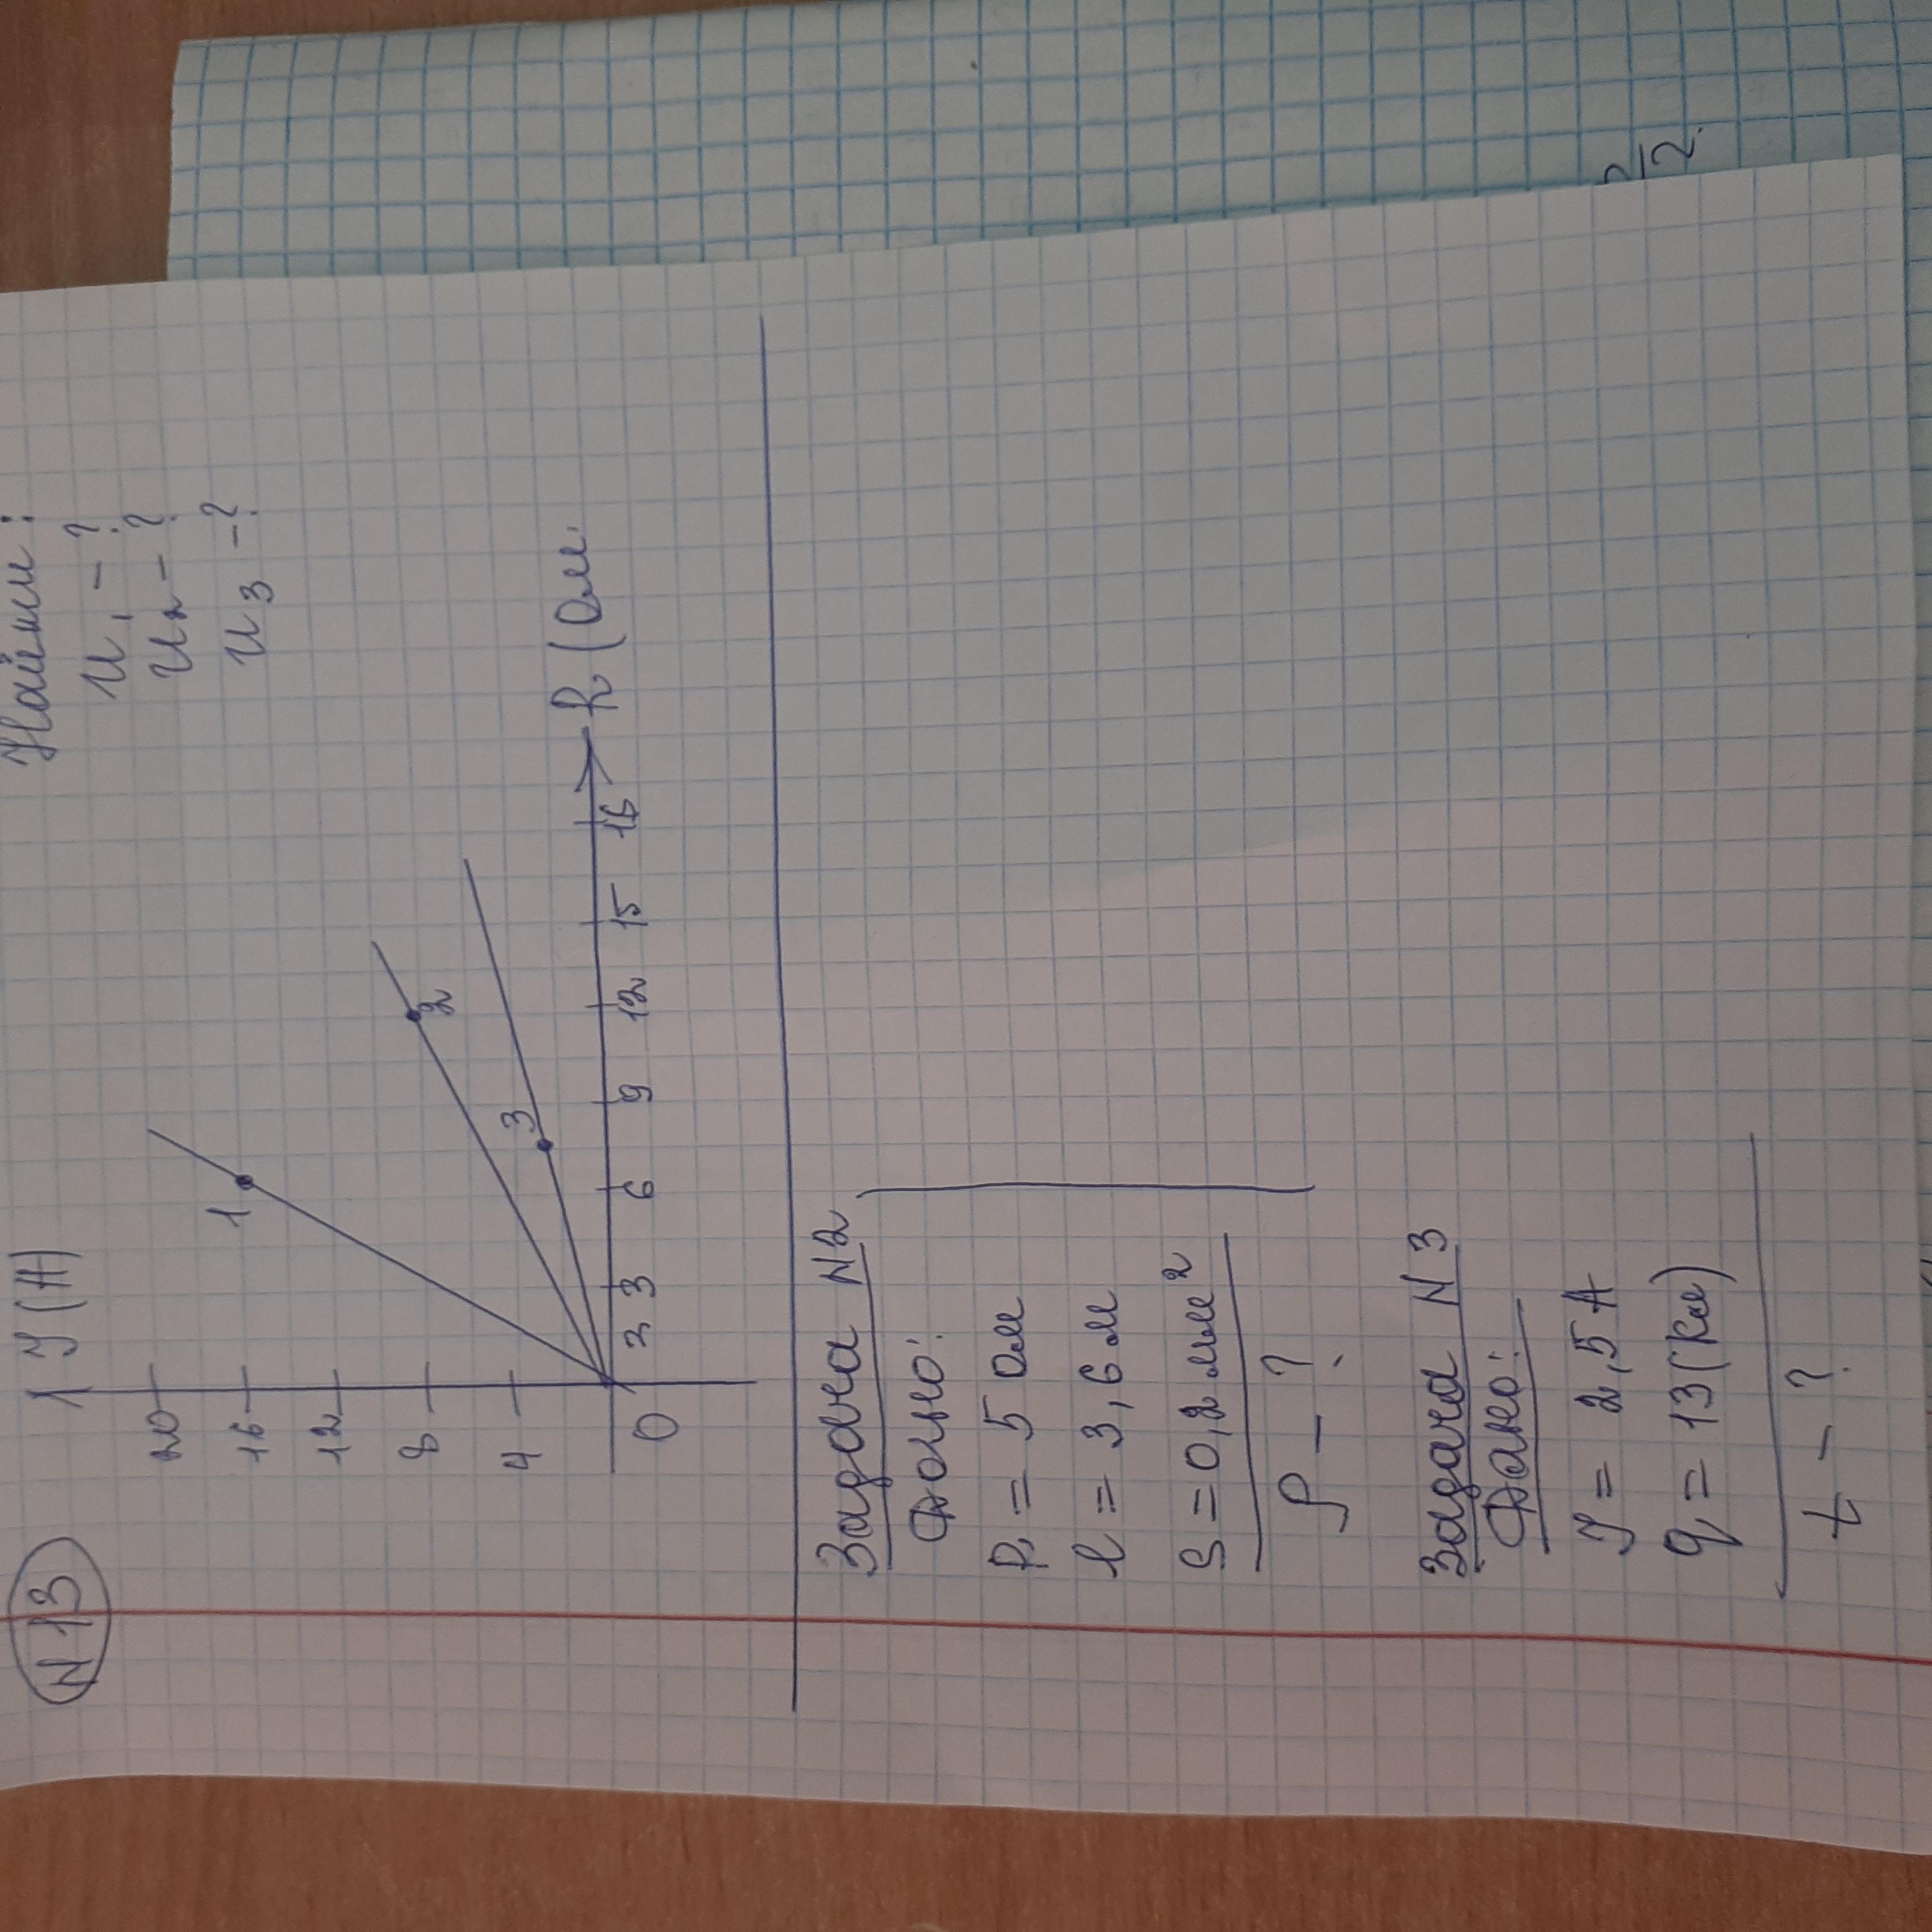 N 13
I (А)
Найти:
U₁ - ?
U₂ - ?
U₃ - ?
20
16
12
8
4
0
1
2
3
3 3 6 9 12 15 16
R (Ом.
Задача N2
Дано:
R = 5 Ом
l = 3,6 м
S = 0,2 мм²
ρ - ?
Задача N 3
Дано:
I = 2,5 А
q = 13 (Кл)
t - ?
2